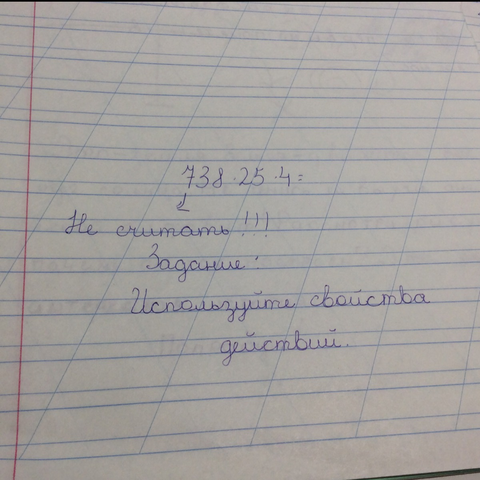 738·25·4=
Не считать!!!
Задание:
Используйте свойства
действий.